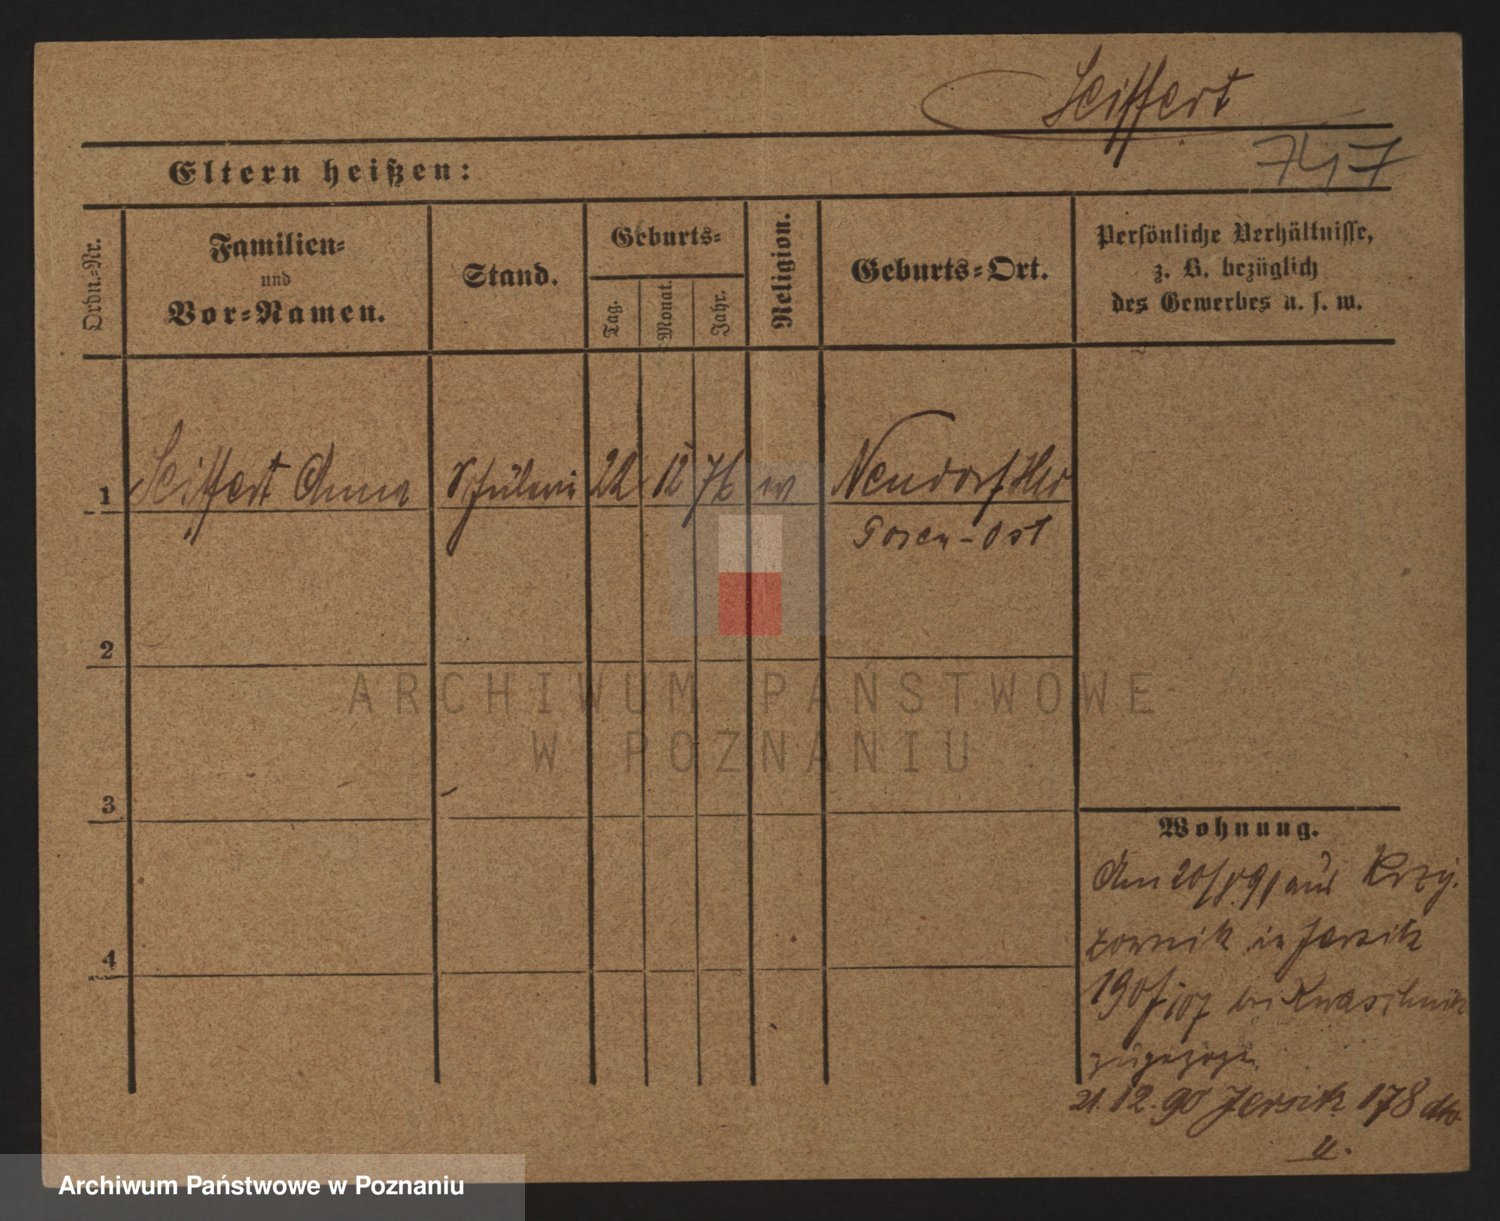 Seiffert
747
Eltern heißen:
Ordn.-Nr.
Familien-
und
Vor-Namen.
Stand.
Geburts-
Tag.
Monat.
Jahr.
Religion.
Geburts-Ort.
Persönliche Verhältnisse,
z. B. bezüglich
des Gewerbes u. s. w.
1 Seiffert Anna Schülerin 22 12 76 ev Neudorf
Posen-Ost
2
3
4
Wohnung.
Am 20/ 91 aus Krzy-
zownik in Jersitz
190/107 bei
zugezogen.
21.12.90 Jersitz 178
ARCHIWUM PAŃSTWOWE
W POZNANIU
Archiwum Państwowe w Poznaniu